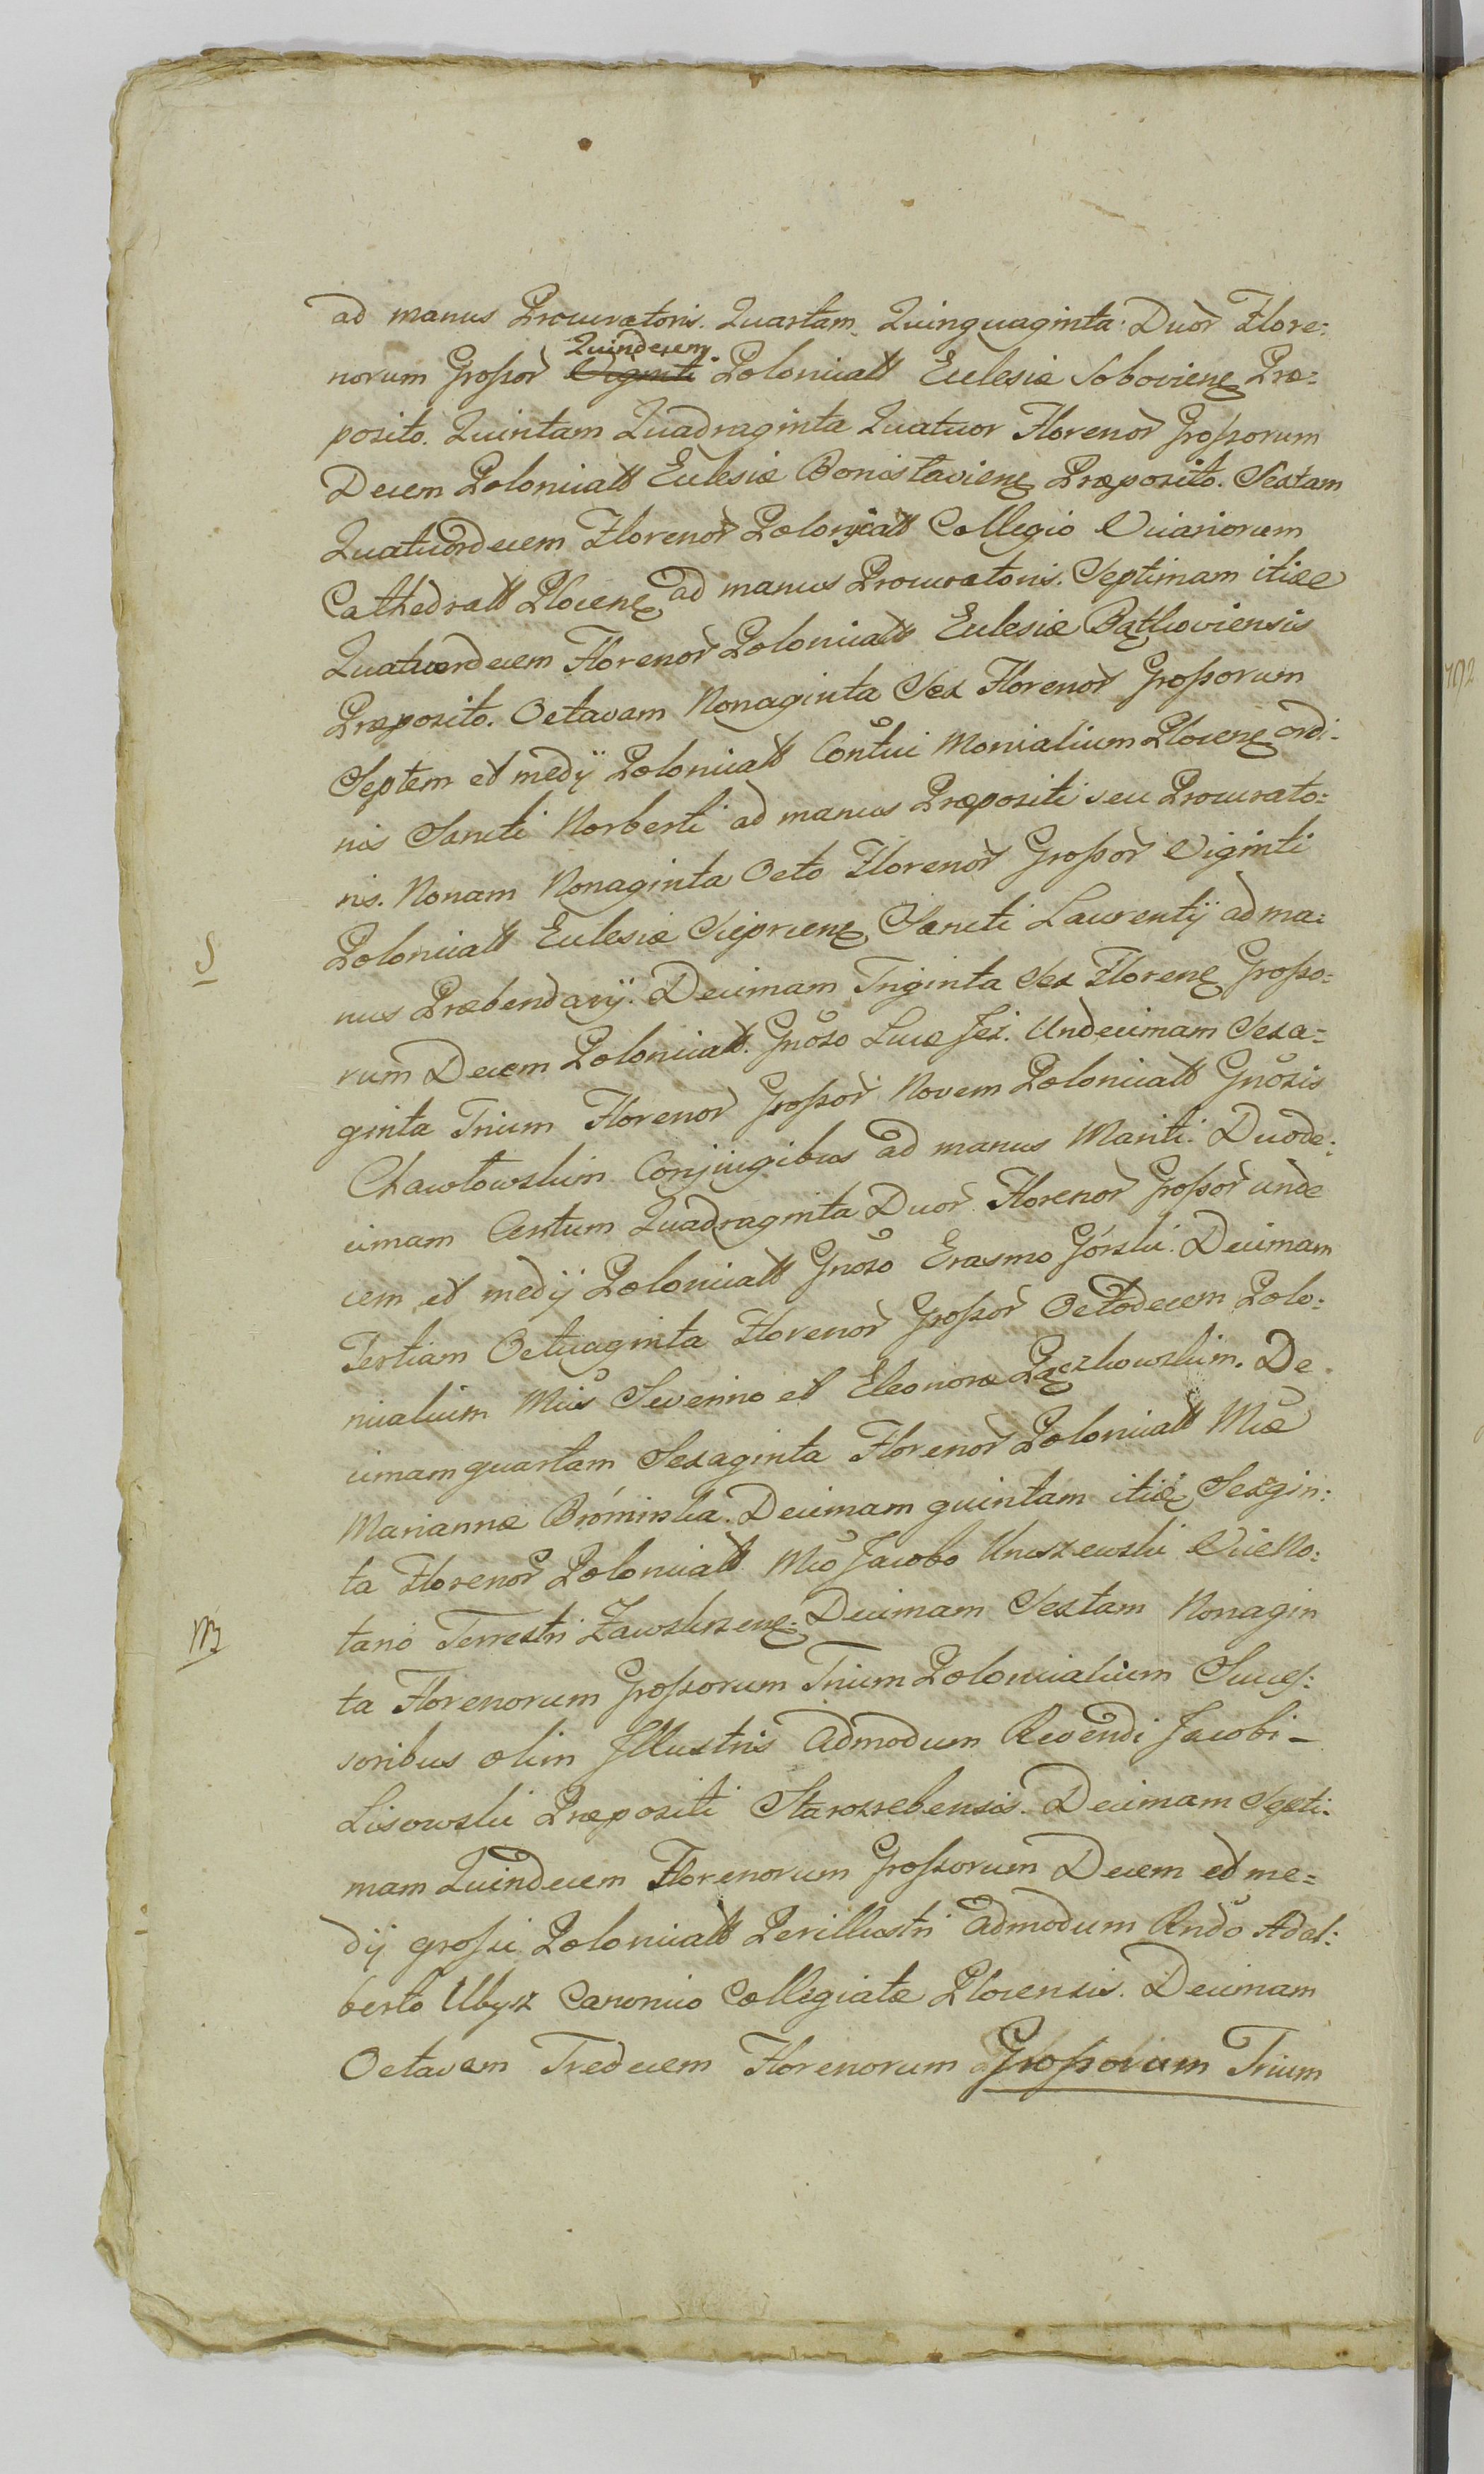 ad manus Procuratoris. Quartam Quinquaginta Duor Flore:
norum Grossor Quindecem Viginti Polonicall Ecclesiæ Soboviens Præ:
posito. Quintam Quadraginta Quatuor Florenor Grossorum
Decem Polonicall Ecclesiæ Bonislaviens Præposito. Sextam
Quatuordecem Florenor Polonicall Collegio Vicariorum
Cathedrall Plocens ad manus Procuratoris. Septimam itidé
Quatuordecem Florenor Polonicall Ecclesiæ Bątkoviensis
Præposito. Octavam Nonaginta Sex Florenor Grossorum
Septem et medij Polonicall Contui Monialium Plocens ordi-
nis Sancti Norberti ad manus Præpositi seu Procurato:
ris. Nonam Nonaginta Octo Florenor Grossor Viginti
Polonicall Ecclesiæ Sieprcens Sancti Laurentij ad ma:
S
nus Præbendarij. Decimam Triginta Sex Florens Grosso:
rum Decem Polonicall. Gnoso Lucæ Jeż. Undecimam Sexa=
ginta Trium Florenor Grossor Novem Polonicall Gnosis
Chawłowskim Conjugibus ad manus Mariti. Duode:
cimam Centum Quadraginta Duor Florenor Grossor unde
cem et medij Polonicall Gnoso Erasmo Górski. Decimam
Tertiam Octuaginta Florenor Grossor Octodecem Polo:
nicalium Mcis Severino et Eleonoræ Pączkowskim. De
cimam quartam Sexaginta Florenor Polonicall Mcæ
Mariannæ Bromirska. Decimam quintam itidé Sexgin:
ta Florenor Polonicall Mco Jacobo Unuszewski ViceNo:
tario Terrestri Zawskrzens. Decimam Sextam Nonagin
M
ta Florenorum Grossorum Trium Polonicalium Succes:
soribus olim Illustris Admodum Revendi Jacobi -
Lisowski Præpositi Starozrebensis. Decimam Septi:
mam Quindecem Florenorum Grossorum Decem et me=
dij grossi Polonicall Perillustri Admodum Rndo Adal:
berto Ubysz Canonico Collegiatæ Plocensis. Decimam
Octavam Tredecem Florenorum Grossorum Trium